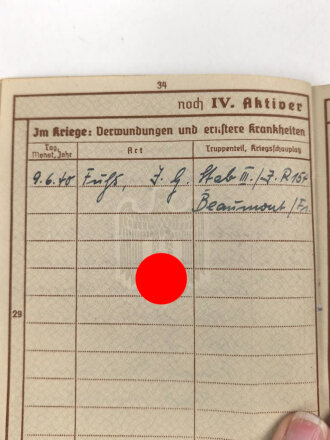 34
noch IV. Aktiver
Im Kriege: Verwundungen und ernstere Krankheiten
Tag, Monat, Jahr
Art
Truppenteil, Kriegsschauplatz
9.6.40 Fuß, I. G. Stab III./J.R. 154
Beaumont / Fr.
29